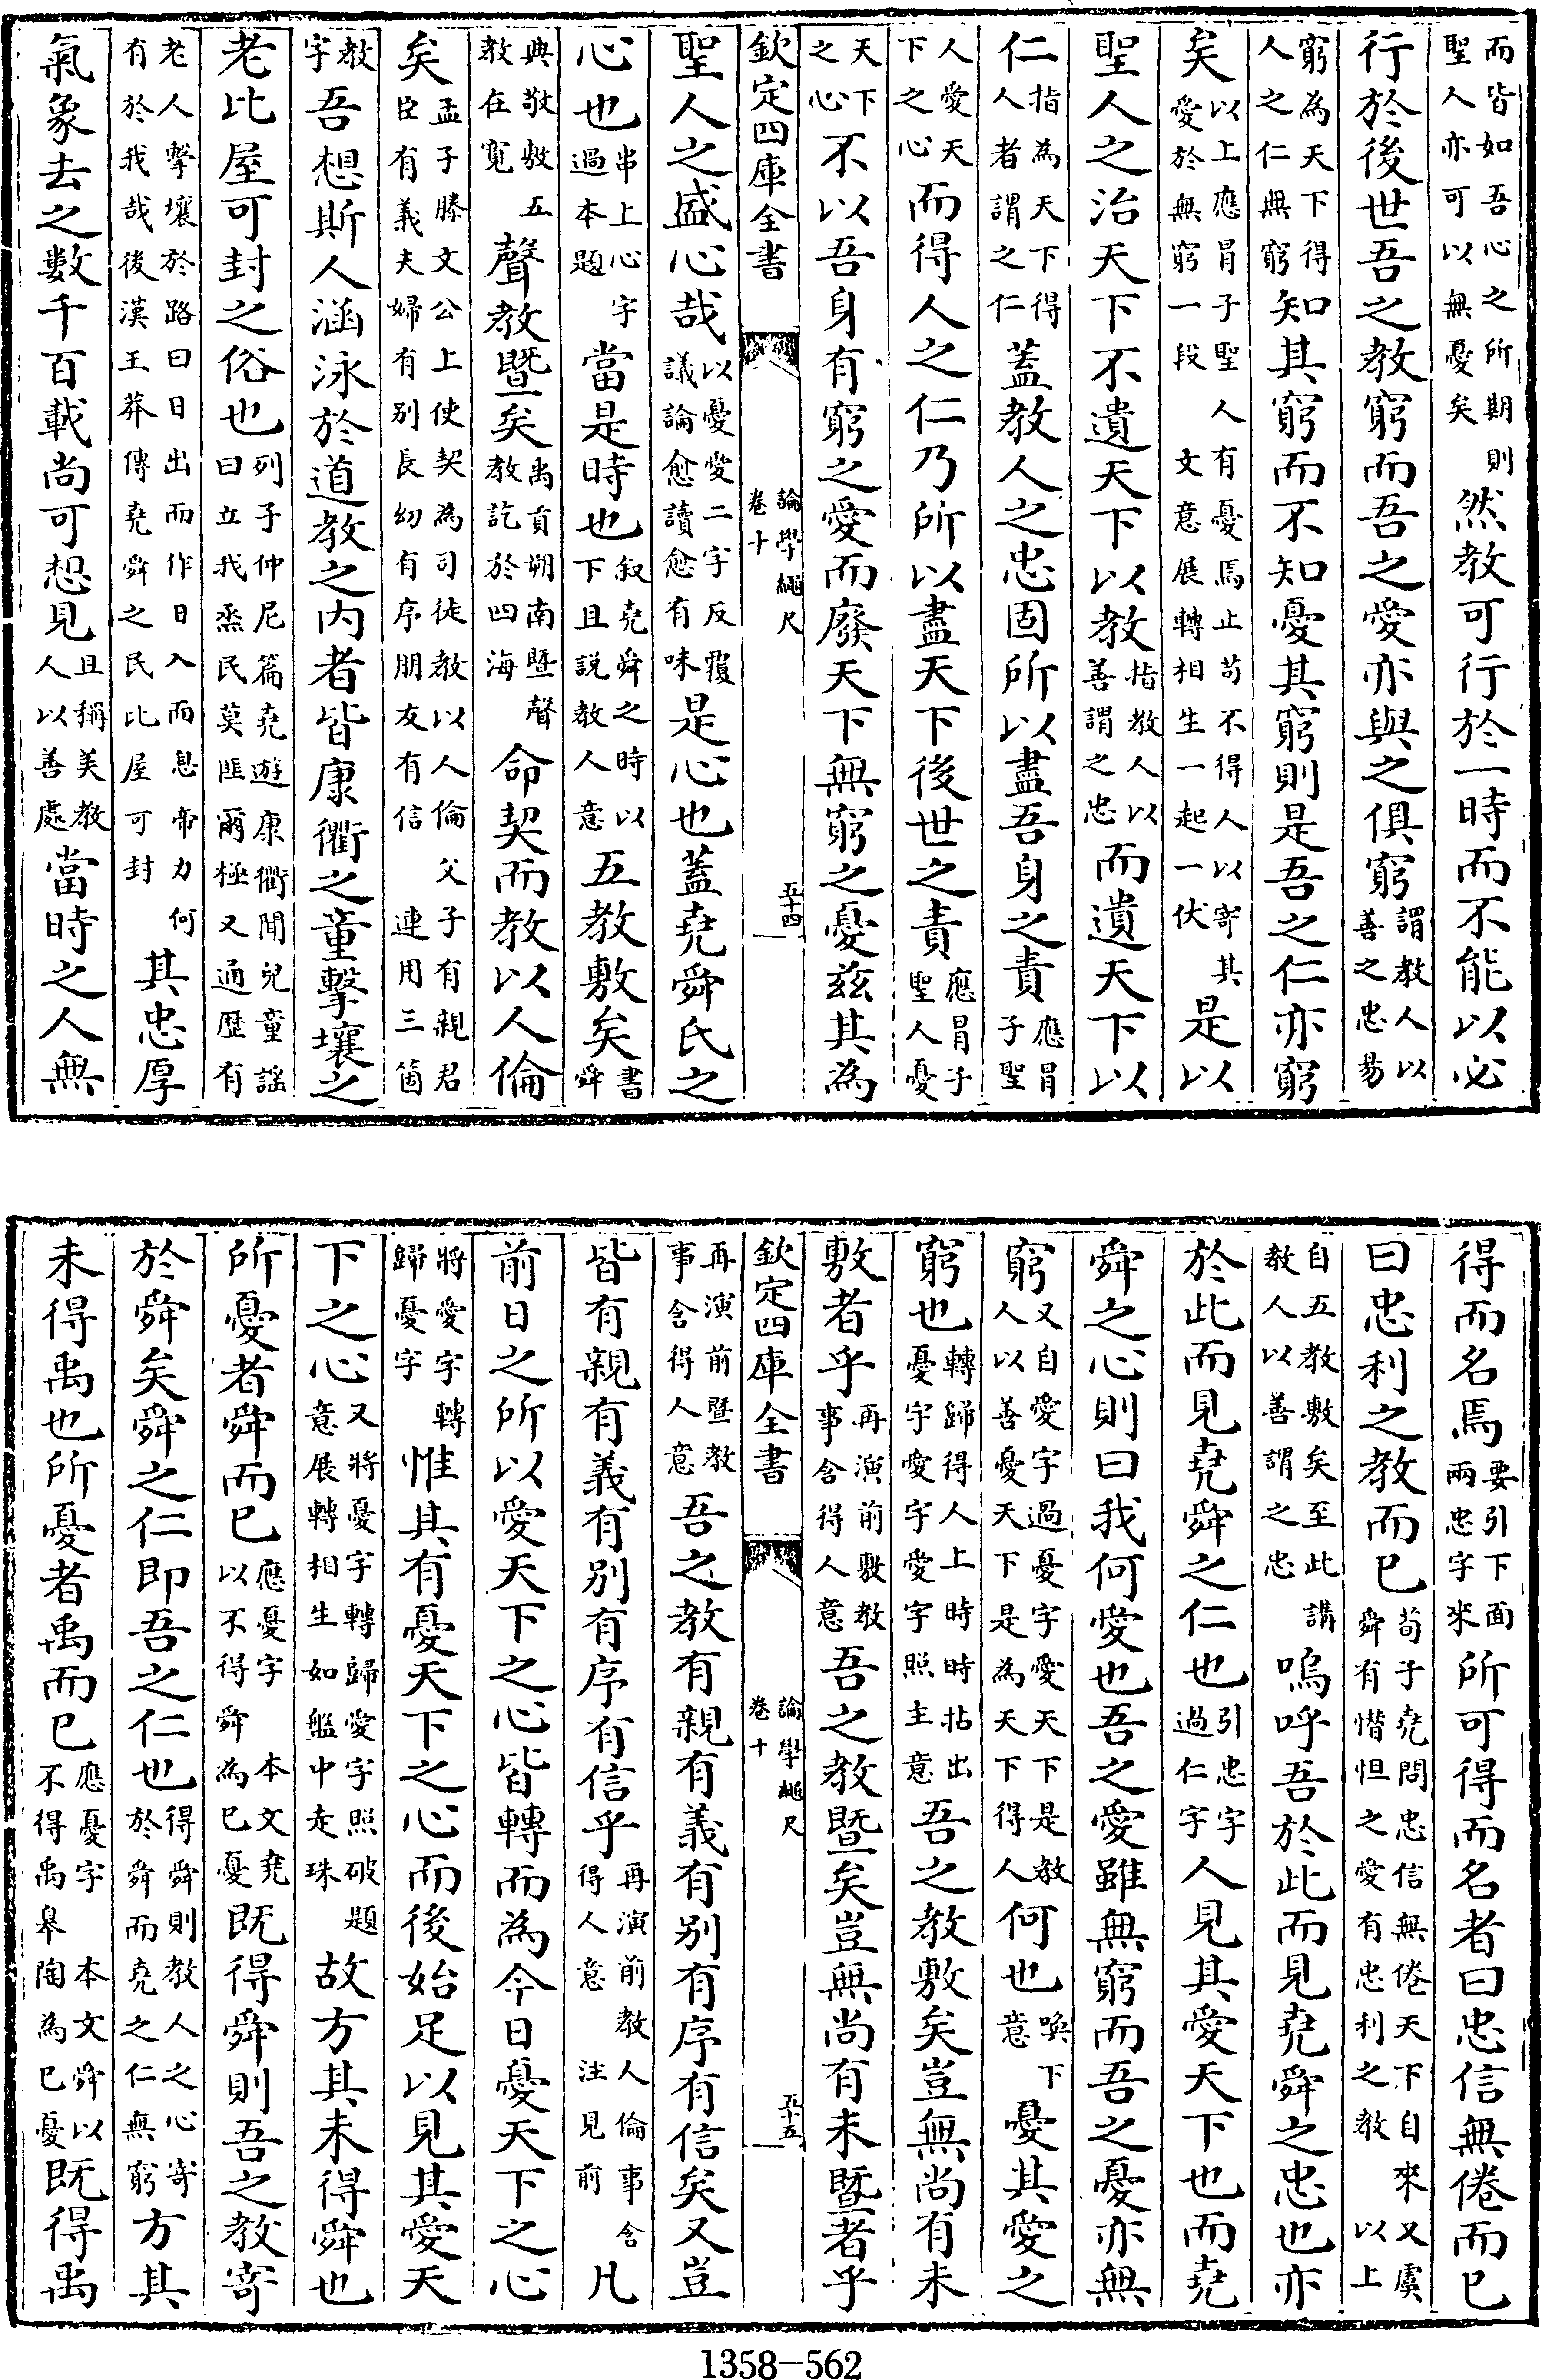 而皆如吾心之所期則聖人亦可以無憂矣然教可行於一時而不能以必
行於後世吾之教窮而吾之愛亦與之俱窮謂教人以善之忠易
窮為天下得人之仁無窮知其窮而不知憂其窮則是吾之仁亦窮
矣以上應冒子聖人有憂焉止苟不得人以寄其愛於無窮一段文意展轉相生一起一伏是以
聖人之治天下不遺天下以教指教人以善謂之忠而遺天下以
仁指為天下得人者謂之仁蓋教人之忠固所以盡吾身之責應冒子聖
人愛天下之心而得人之仁乃所以盡天下後世之責應冒子聖人憂
天下之心不以吾身有窮之愛而廢天下無窮之憂兹其為
欽定四庫全書 論學繩尺 卷十 五十四
聖人之盛心哉以憂愛二字反覆議論愈讀愈有味是心也蓋堯舜氏之
心也串上心字過本題當是時也叙堯舜之時以下且説教人意五教敷矣書舜
典敬敷五教在寬聲教暨矣禹貢朔南暨聲教訖於四海命契而教以人倫
矣孟子滕文公上使契為司徒教以人倫父子有親君臣有義夫婦有别長幼有序朋友有信連用三箇
教字吾想斯人涵泳於道教之内者皆康衢之童擊壤之
老比屋可封之俗也列子仲尼篇堯遊康衢聞兒童謡曰立我烝民莫匪爾極又通歴有
老人擊壤於路曰日出而作日入而息帝力何有於我哉後漢王莽傳堯舜之民比屋可封其忠厚
氣象去之數千百載尚可想見且稱美教人以善處當時之人無
得而名焉要引下面兩忠字來所可得而名者曰忠信無倦而已
曰忠利之教而已荀子堯問忠信無倦天下自來又虞舜有憯怛之愛有忠利之教以上
自五教敷矣至此講教人以善謂之忠嗚呼吾於此而見堯舜之忠也亦
於此而見堯舜之仁也引忠字過仁字人見其愛天下也而堯
舜之心則曰我何愛也吾之愛雖無窮而吾之憂亦無
窮又自愛字過憂字愛天下是教人以善憂天下是為天下得人何也喚下意憂其愛之
窮也轉歸得人上時時拈出憂字愛字愛字照主意吾之教敷矣豈無尚有未
敷者乎再演前敷教事含得人意吾之教暨矣豈無尚有未暨者乎
欽定四庫全書 論學繩尺 卷十 五十五
再演前暨教事含得人意吾之教有親有義有别有序有信矣又豈
皆有親有義有别有序有信乎再演前教人倫事含得人意注見前凡
前日之所以愛天下之心皆轉而為今日憂天下之心
將愛字轉歸憂字惟其有憂天下之心而後始足以見其愛天
下之心又將憂字轉歸愛字照破題意展轉相生如盤中走珠故方其未得舜也
所憂者舜而已應憂字本文堯以不得舜為已憂既得舜則吾之教寄
於舜矣舜之仁即吾之仁也得舜則教人之心寄於舜而堯之仁無窮方其
未得禹也所憂者禹而已應憂字本文舜以不得禹皋陶為已憂既得禹
1358-562